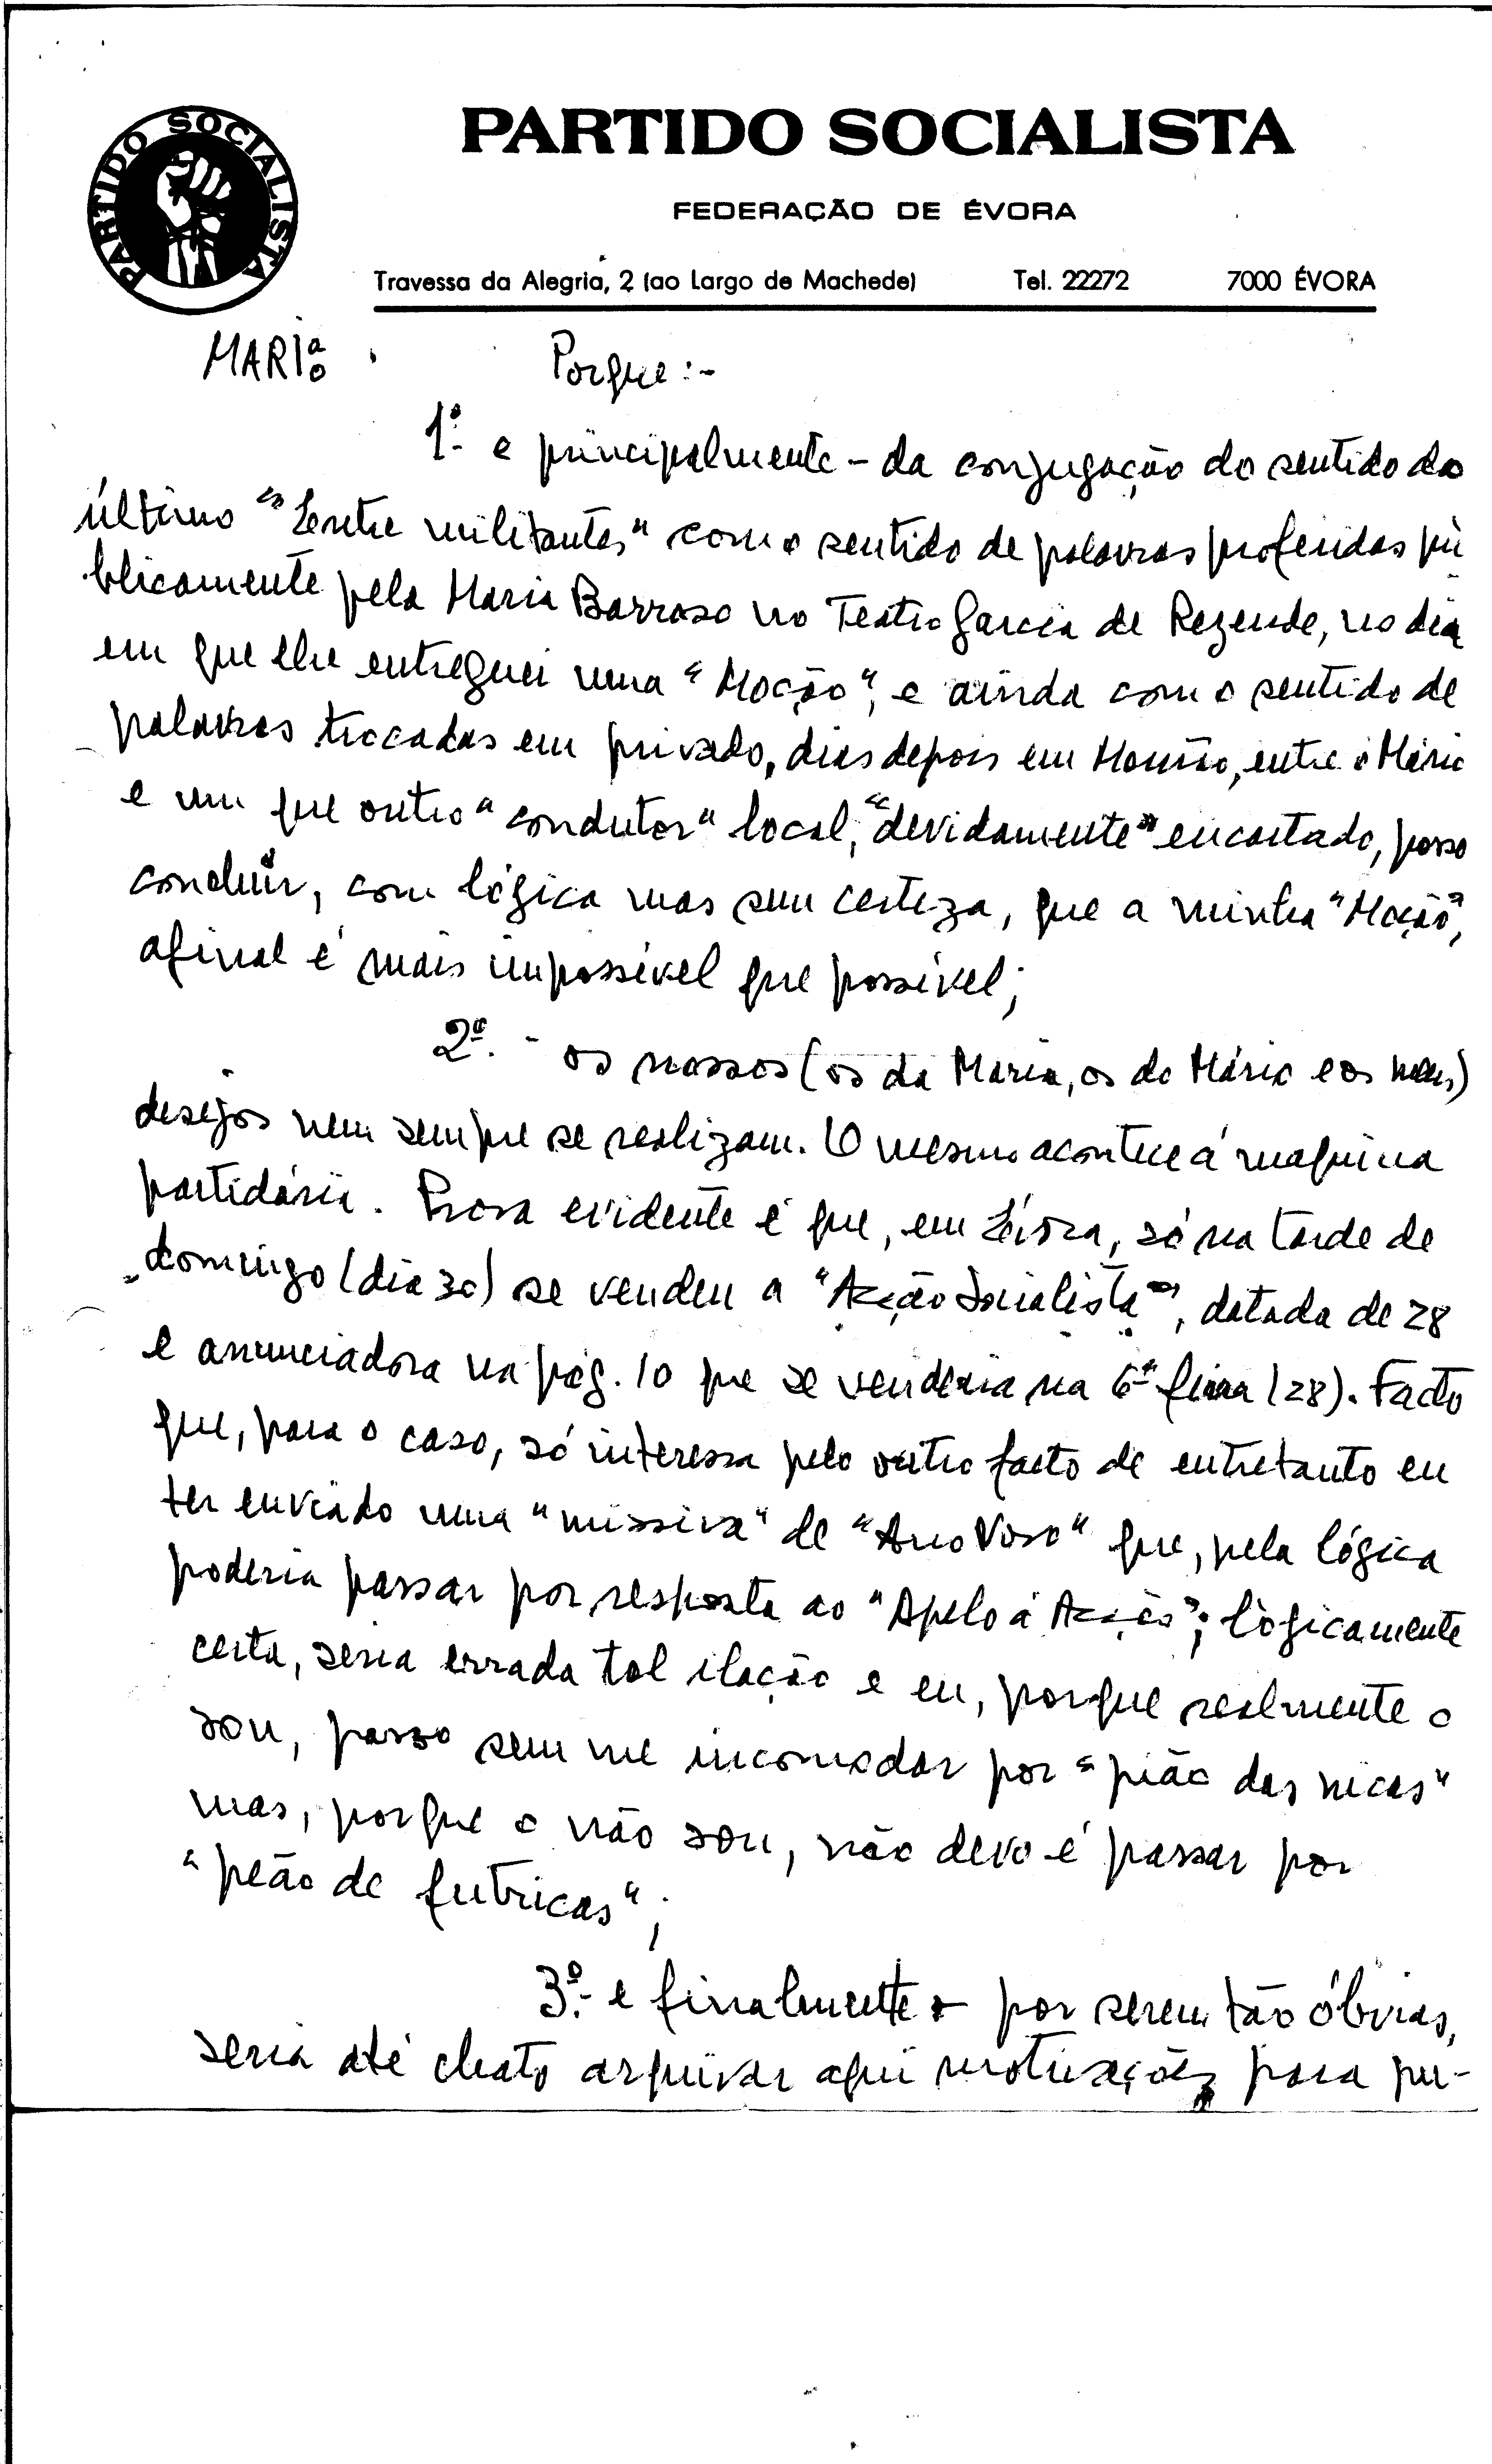 PARTIDO SOCIALISTA
PARTIDO SOCIALISTA
FEDERAÇÃO DE ÉVORA
Travessa da Alegria, 2 (ao Largo de Machede) Tel. 22272 7000 ÉVORA
MARIªo Porque:-
1º- e principalmente - da conjugação do sentido do
último "Entre militantes" com o sentido de palavras proferidas pú
blicamente pela Maria Barroso no Teatro Garcia de Rezende, no dia
em que lhe entreguei uma "Moção", e ainda com o sentido de
palavras trocadas em privado, dias depois em Mourão, entre o Mário
e um que outro "condutor" local, "devidamente" encartado, posso
concluir, com lógica mas sem certeza, que a minha "Moção",
afinal é mais impossível que possível;
2º. - os nossos (os da Maria, os do Mário e os meus)
desejos nem sempre se realizam. O mesmo acontece á maquina
partidária. Prova evidente é que, em Évora, só na tarde de
domingo (dia 30) se vendeu a "Acção Socialista", datada de 28
e anunciadora na pág. 10 que se venderia na 6ª feira (28). Facto
que, para o caso, só interessa pelo outro facto de entretanto eu
ter enviado uma "missiva" de "Ano Novo" que, pela lógica
poderia passar por resposta ao "Apelo á Acção"; lògicamente
certa, seria errada tal ilação e eu, porque realmente o
sou, passo sem me incomodar por "pião das nicas"
mas, porque o não sou, não devo é passar por
"peão de futricas";
3º.- e finalmente - por serem tão óbvias,
seria até chato arquivar aqui motivações para pu-